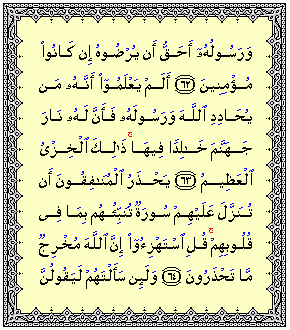 وَرَسُولُهُۥٓ أَحَقُّ أَن يُرْضُوهُ إِن كَانُوا۟
مُؤْمِنِينَ ﴿٦٢﴾ أَلَمْ يَعْلَمُوٓا۟ أَنَّهُۥ مَن
يُحَادِدِ ٱللَّهَ وَرَسُولَهُۥ فَأَنَّ لَهُۥ نَارَ
جَهَنَّمَ خَـٰلِدًا فِيهَا ۚ ذَٰلِكَ ٱلْخِزْىُ
ٱلْعَظِيمُ ﴿٦٣﴾ يَحْذَرُ ٱلْمُنَـٰفِقُونَ أَن
تُنَزَّلَ عَلَيْهِمْ سُورَةٌ تُنَبِّئُهُم بِمَا فِى
قُلُوبِهِمْ ۚ قُلِ ٱسْتَهْزِءُوٓا۟ إِنَّ ٱللَّهَ مُخْرِجٌ
مَّا تَحْذَرُونَ ﴿٦٤﴾ وَلَئِن سَأَلْتَهُمْ لَيَقُولُنَّ